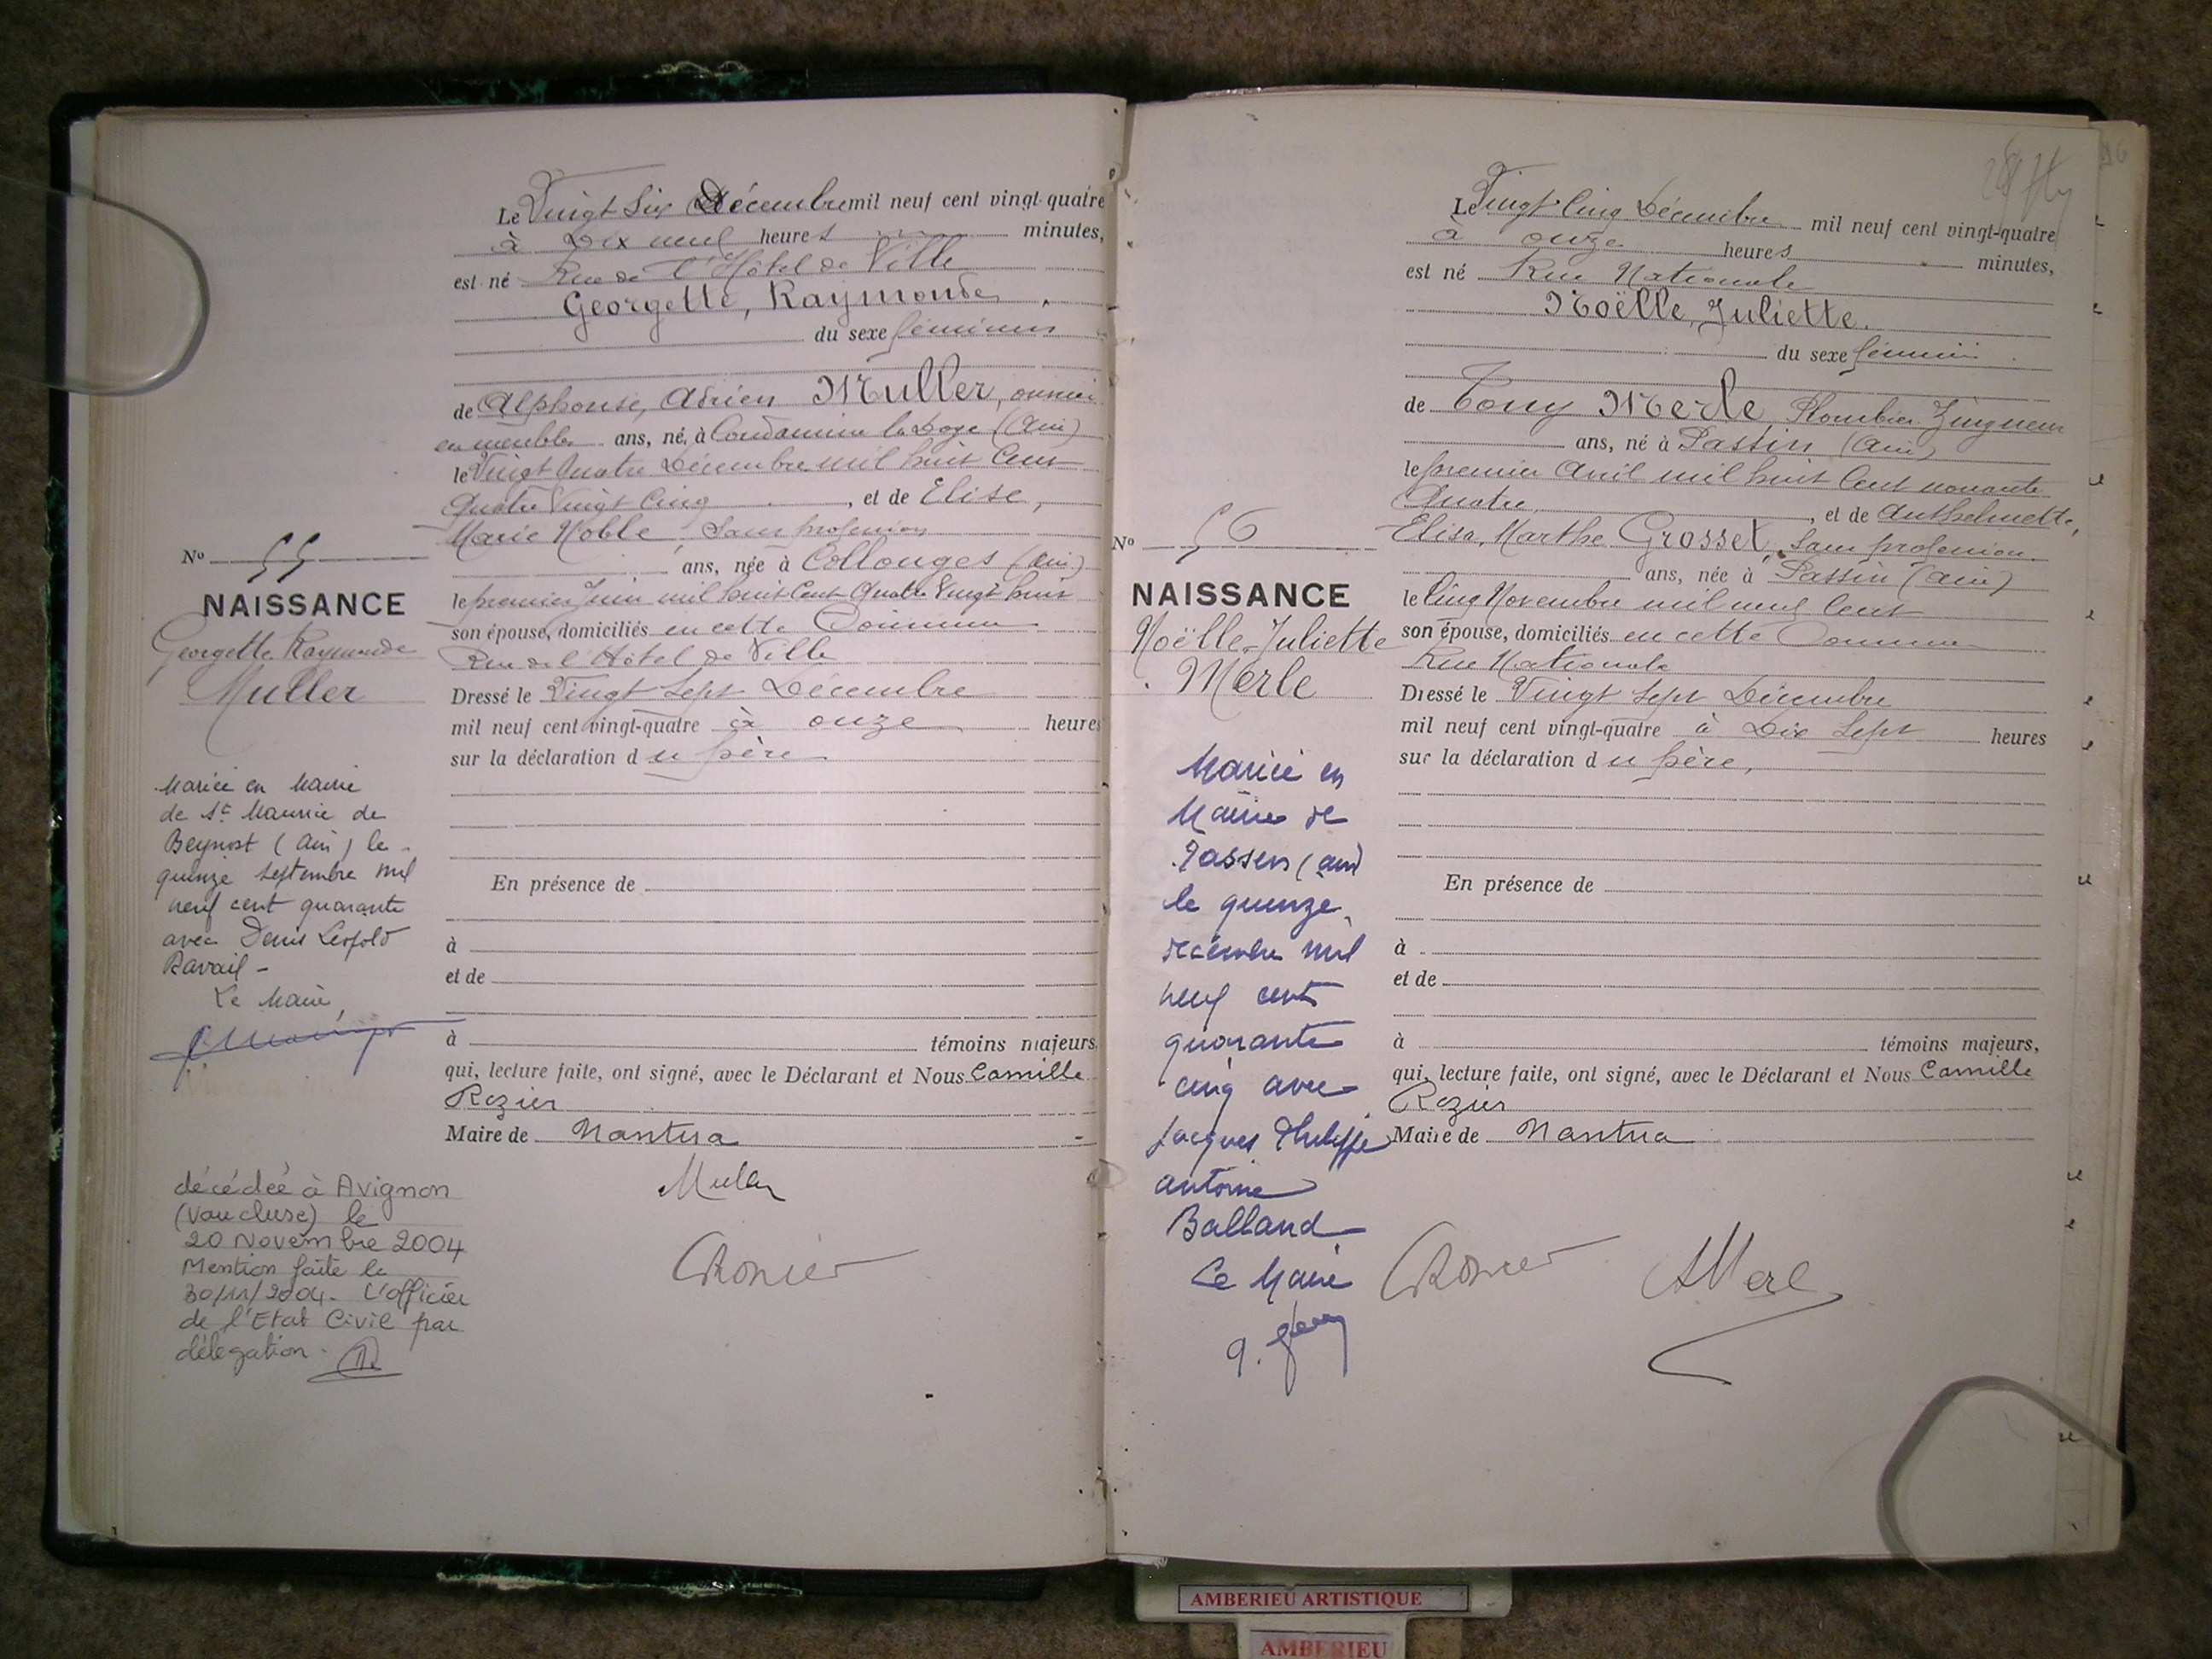 Le Vingt Six Décembre mil neuf cent vingt-quatre
à Dix neuf heures minutes,
est né Rue de l'Hôtel de Ville
Georgette, Raymonde
du sexe féminin
de Alphonse, Adrien Muller, ouvrier
en meubles ans, né à Condamine la Doye (Ain)
le Vingt Quatre Décembre mil huit Cent
Quatre Vingt Cinq, et de Elise,
Marie Noble, sans profession
ans, née à Collonges (Ain)
le premier Juin mil huit Cent Quatre Vingt huit
son épouse, domiciliés en cette Commune
Rue de l'Hôtel de Ville
Dressé le Vingt Sept Décembre
mil neuf cent vingt-quatre à onze heures
sur la déclaration du père
En présence de
à
et de
à témoins majeurs,
qui, lecture faite, ont signé, avec le Déclarant et Nous Camille
Rozier
Maire de Nantua
Muller
CRozier
No 55
NAISSANCE
Georgette Raymonde
Muller
Mariée en Mairie
de St Maurice de
Beynost (Ain) le
quinze septembre mil
neuf cent quarante
avec Denis Léopold
Ravail -
Le Maire,
décédée à Avignon
(Vaucluse) le
20 Novembre 2004
Mention faite le
30/11/2004. L'officier
de l'Etat Civil par
délégation.
Le Vingt Cinq Décembre mil neuf cent vingt-quatre
à onze heures minutes,
est né Rue Nationale
Noëlle, Juliette.
du sexe féminin
de Tony Merle, Plombier Zingueur
ans, né à Passin (Ain)
le premier Avril mil huit Cent nonante
Quatre, et de Anthelmette,
Elisa, Marthe Grosset, sans profession
ans, née à Passin (Ain)
le Cinq Novembre mil neuf Cent
son épouse, domiciliés en cette Commune
Rue Nationale
Dressé le Vingt Sept Décembre
mil neuf cent vingt-quatre à Dix Sept heures
sur la déclaration du père,
En présence de
à
et de
à témoins majeurs,
qui, lecture faite, ont signé, avec le Déclarant et Nous Camille
Rozier
Maire de Nantua
CRozier
No 56
NAISSANCE
Noëlle-Juliette
Merle
Mariée en
Mairie de
(Ain)
le quinze
décembre mil
neuf cent
quarante
cinq avec
Jacques Philippe
Antoine
Balland
Le Maire
AMBERIEU ARTISTIQUE
AMBERIEU